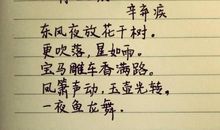 辛弃疾
东风夜放花千树。
更吹落，星如雨。
宝马雕车香满路。
凤箫声动，玉壶光转，
一夜鱼龙舞.